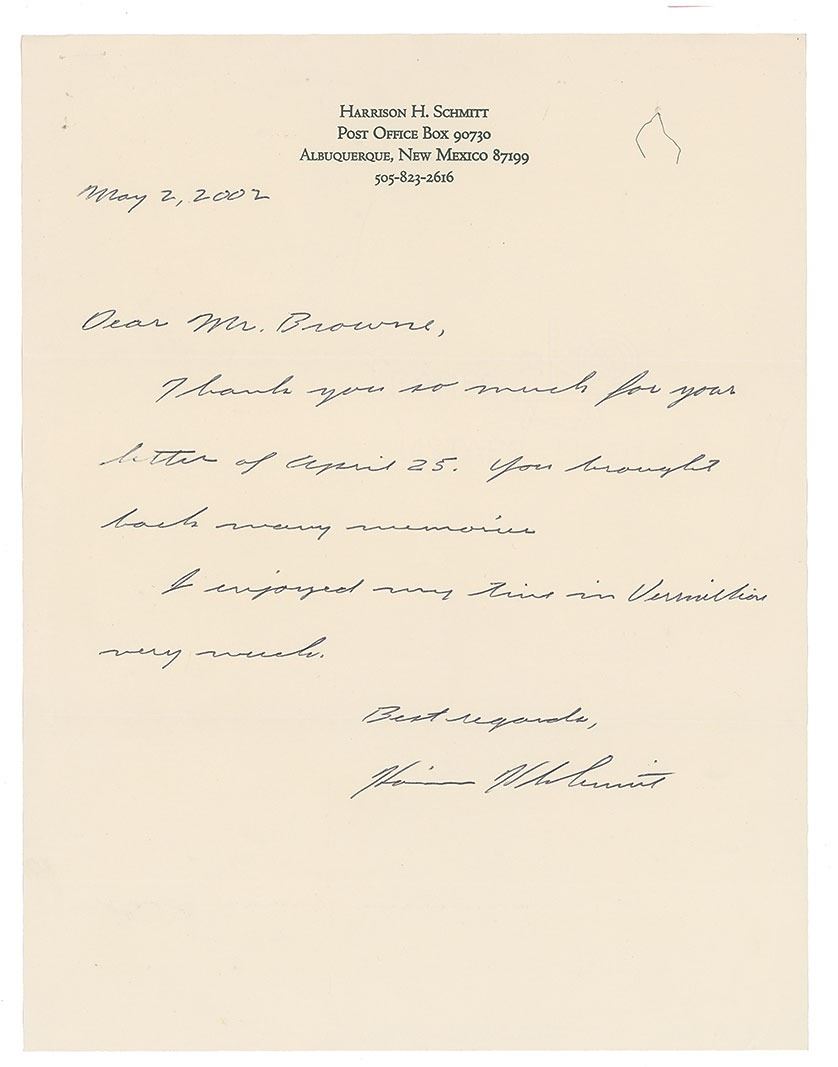 Harrison H. Schmitt
Post Office Box 90730
Albuquerque, New Mexico 87199
505-823-2616
May 2, 2002
Dear Mr. Browne,
Thank you so much for your
letter of April 25. You brought
back many memories
I enjoyed my time in Vermillion
very much.
Best regards,
Harrison H Schmitt